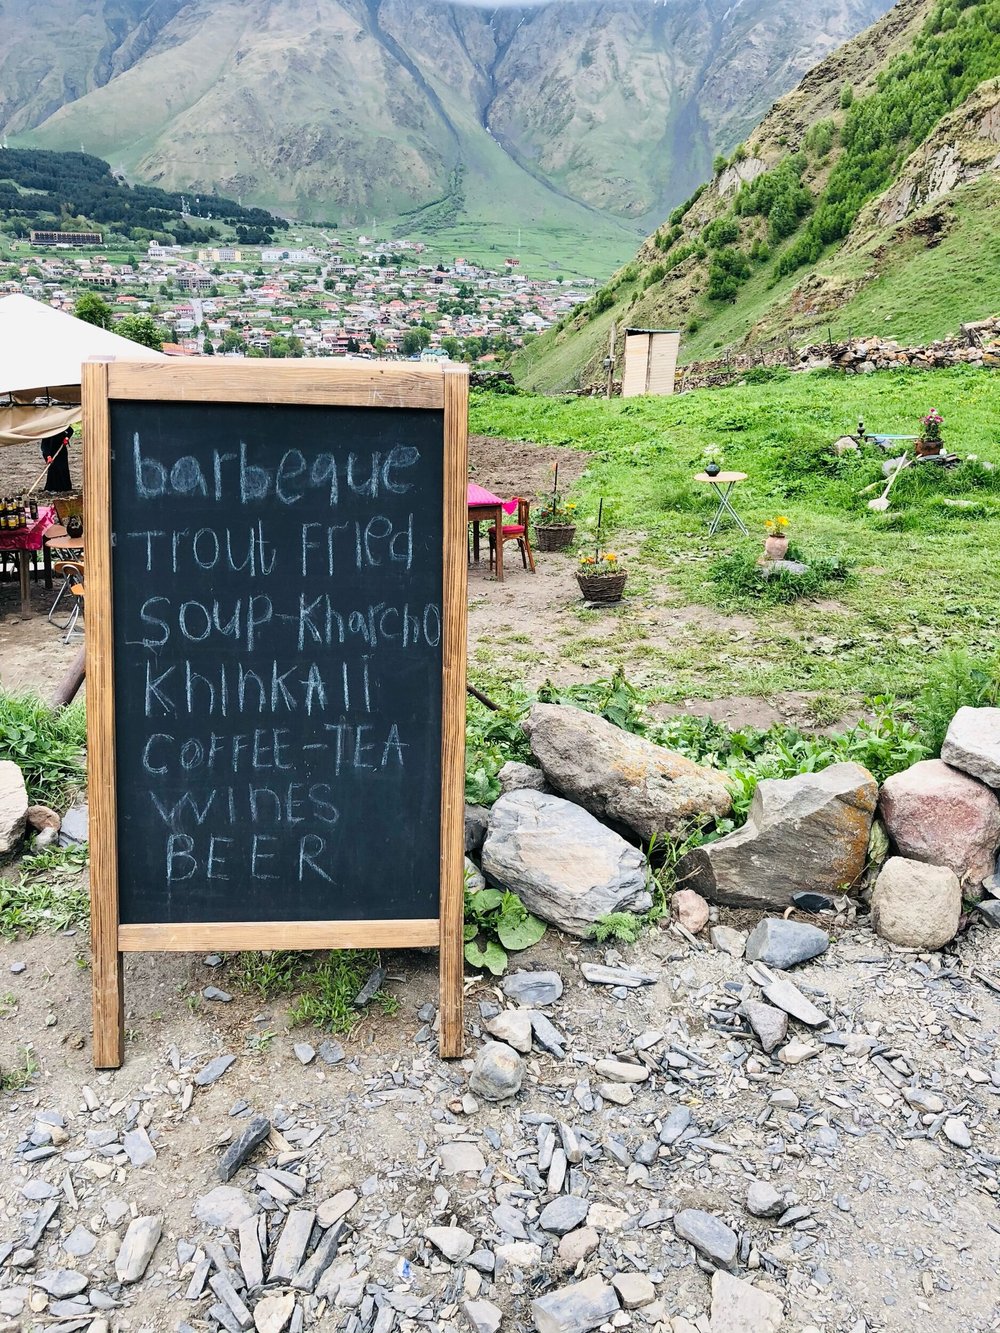 barbeque
Trout Fried
SOUP-Kharcho
KhInKAlI
COFFEE-TEA
WINES
BEER